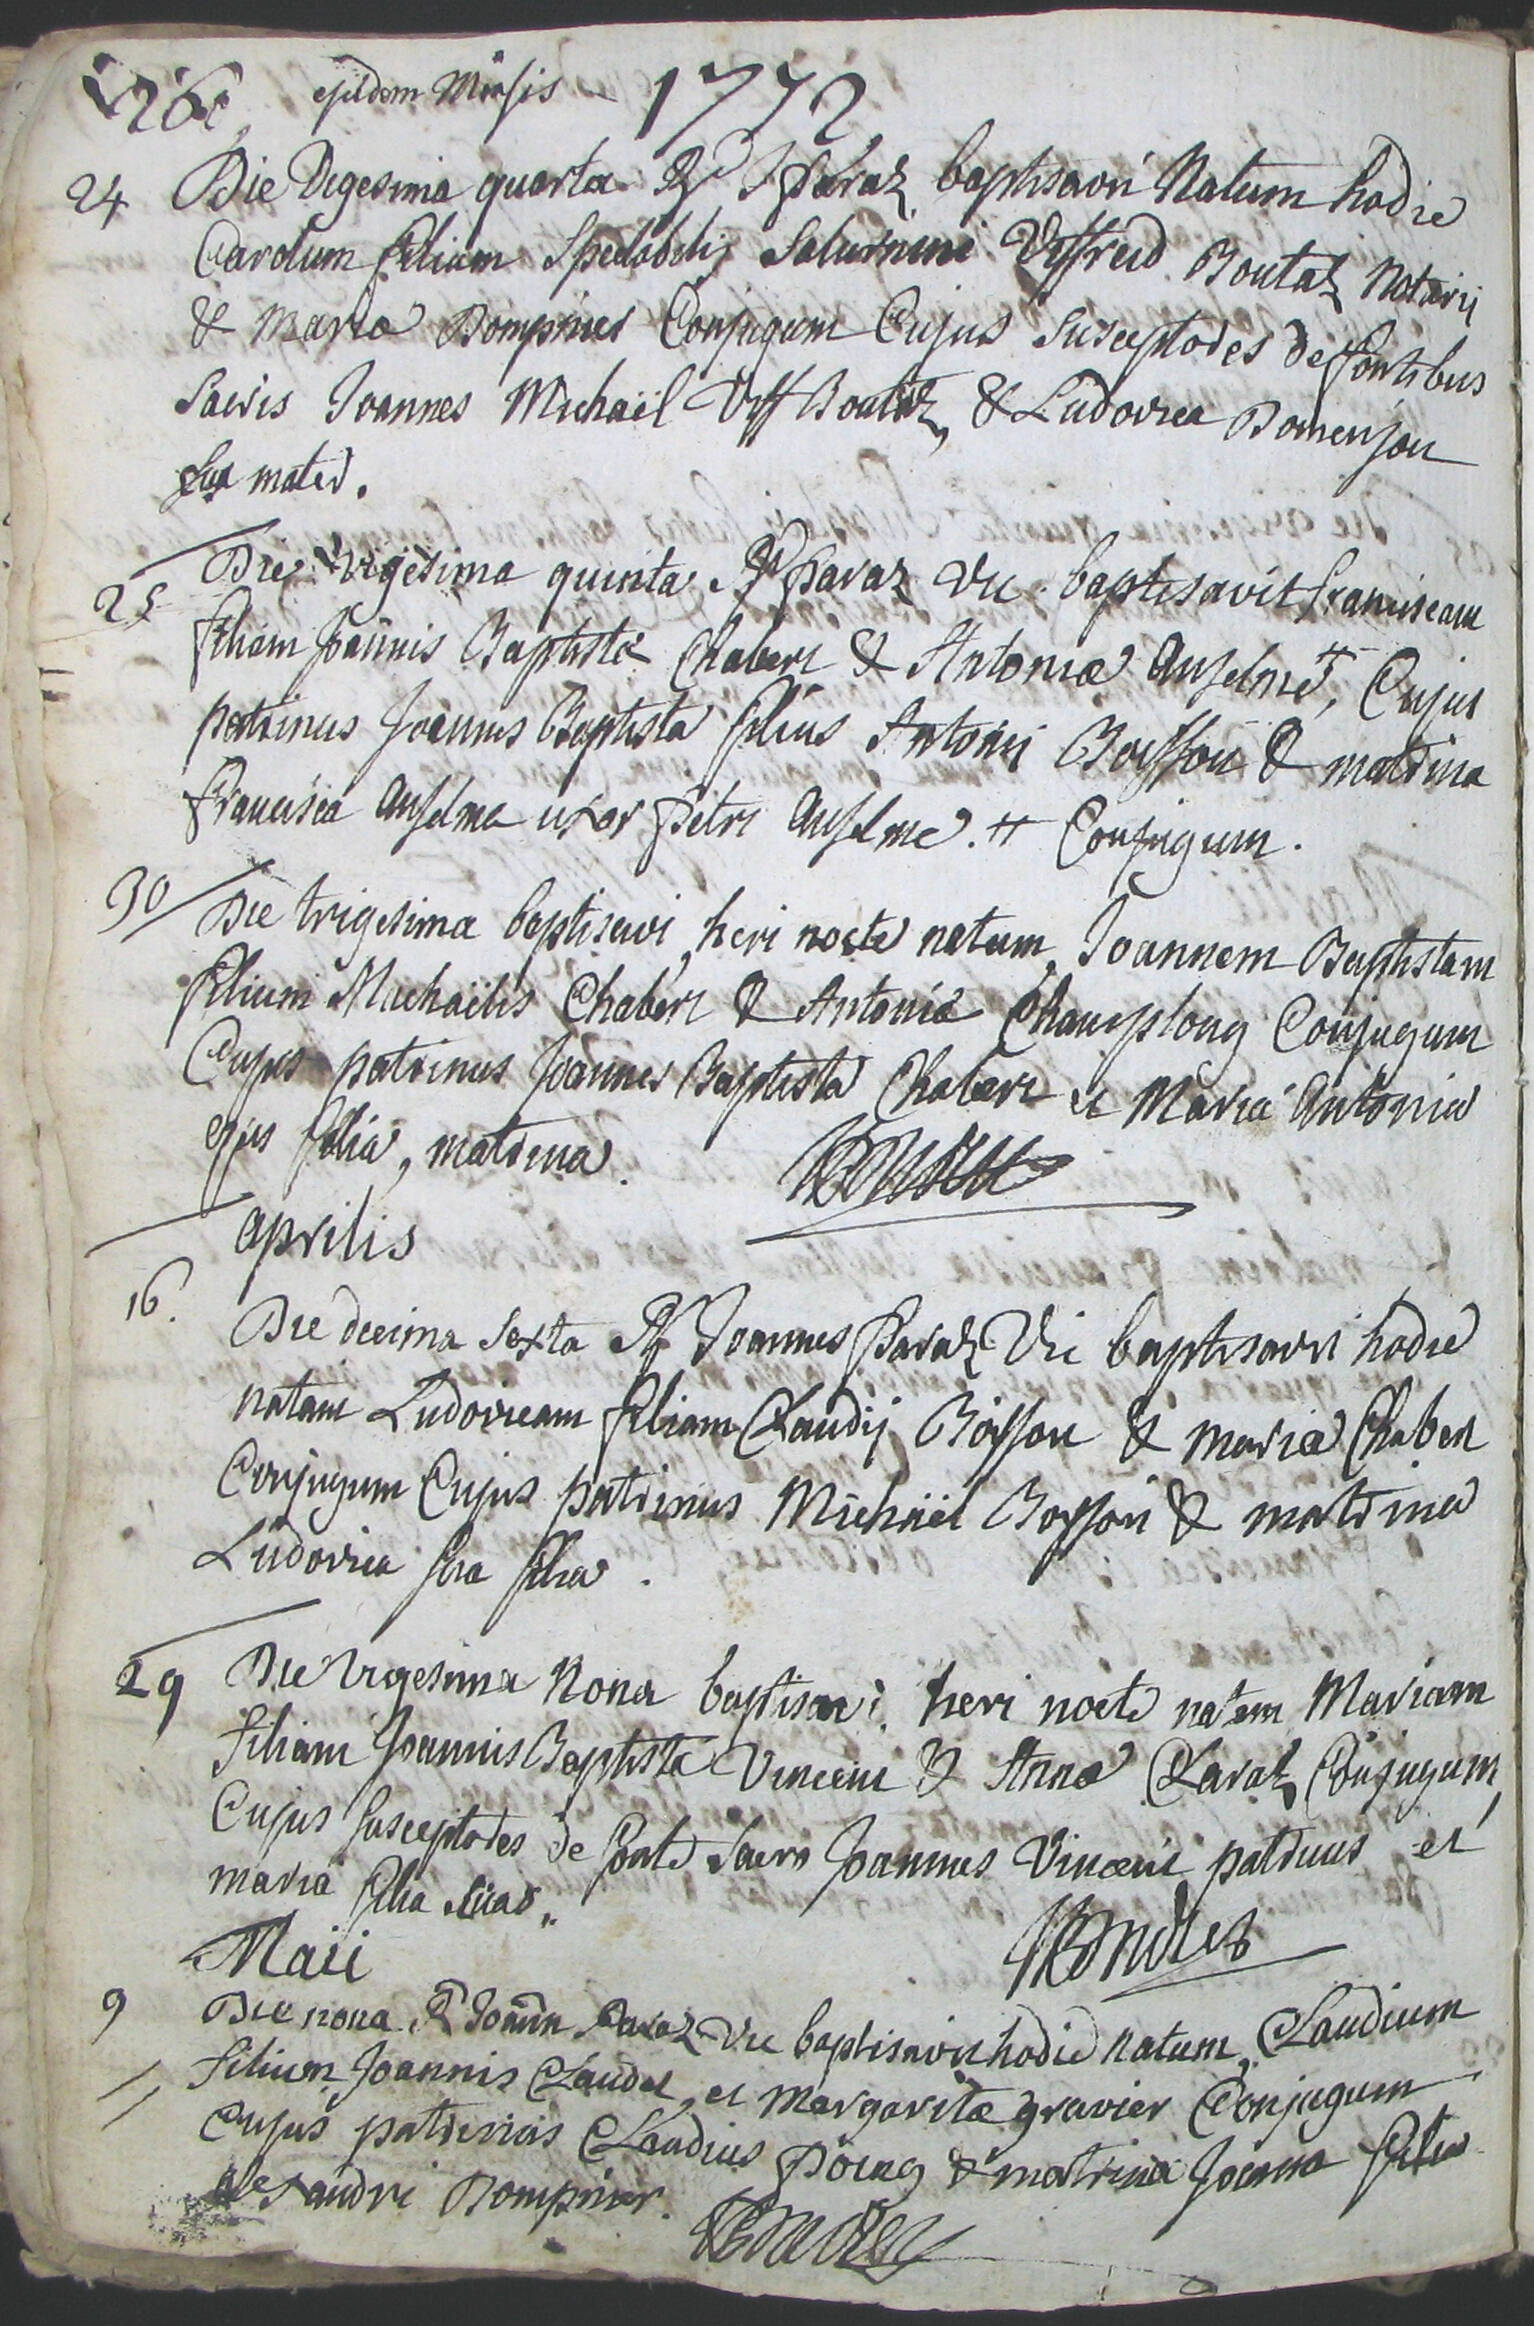 ejusdem Mensis 1772
24 Die Vigesima quarta Rd J Paraz baptisavi Natum hodie
Carolum filium Spectabilis Saturnini Viffreid Boutaz Notarii
& Maria Dompnier Conjugum Cujus Susceptores de fontibus
Sacris Joannes Michaël Viff Boutaz, & Ludovica Domenjou
sua mater.
25 Die vigesima quinta Rd Paraz Vic. baptisavit franciscam
filiam Joannis Baptistæ Chabert & Antoniæ Anselme, # Cujus
patrinus Joannes Baptista filius Antonii Boisson & matrina
francisca Anselme uxor petri Anselme. # Conjugum.
30 Die trigesima baptisavi, heri nocte natum, Joannem Baptistam
filium Michaëlis Chabert & Antoniæ Champlong Conjugum
Cujus patrinus Joannes Baptista Chabert et Maria Antonia
ejus filia, matrina.
aprilis
16. Die decima Sexta Rd Joannes Paraz Vic baptisavit hodie
natam Ludovicam filiam Claudij Boisson & mariæ Chabert
Conjugum Cujus patrinus Michaël Boisson & matrina
Ludovica sua filia.
29 Die Vigesima Nona baptisavi, heri nocte natam Mariam
filiam Joannis Baptistæ Vincent & Annæ Claraz Conjugum,
Cujus Susceptores de fonte Sacro Joannes Vincent patruus et
maria filia
Maii
9 Die nona Rd Joann Paraz Vic baptisavit hodie natum, Claudium
filium Joannis Claudel, et Margaritæ gravier Conjugum
Cujus patrinus Claudius & matrina Joanna filia
alexandri Dompnier.